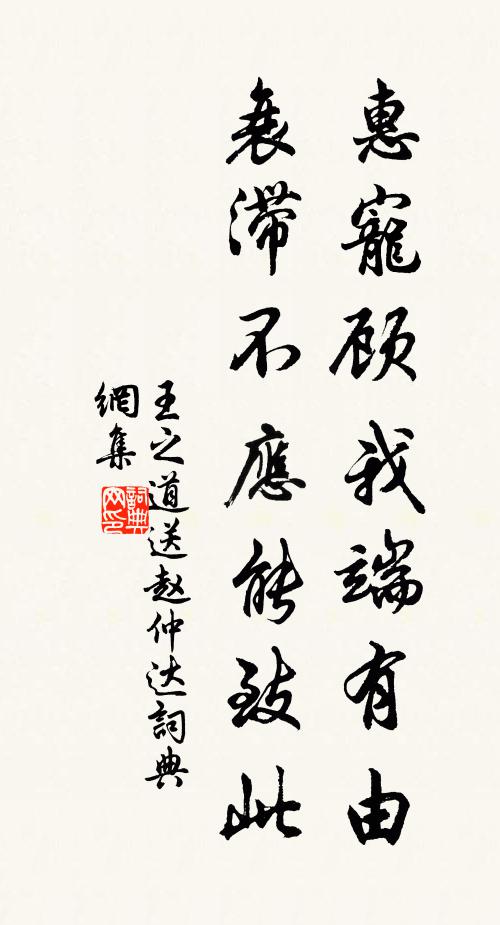 惠寵顾我端有由
衰滞不應能致此
王之道送赵仲达詞典
網集
詞典网印